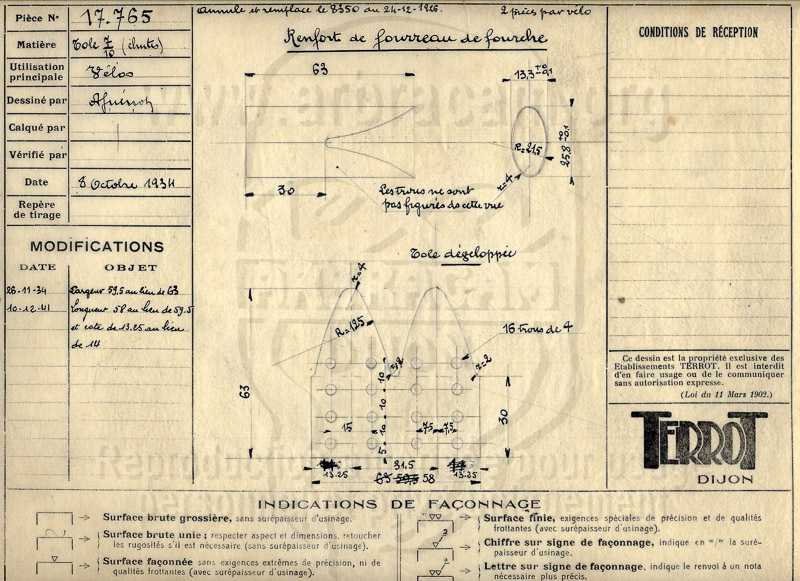 Pièce N° 17.765
Annule et remplace le 8350 du 24-12-1926.
2 pièces par vélo
Matière Tole 7/10 (chutes)
Utilisation principale Vélos
Dessiné par
Calqué par
Vérifié par
Date 8 Octobre 1934
Repère de tirage
MODIFICATIONS
DATE OBJET
26-11-34 Largeur 59,5 au lieu de 63
10-12-41 Longueur 58 au lieu de 59,5
et cote de 13.25 au lieu
de 14
Renfort de fourreau de fourche
63
13,3 +0 -0,1
R=21,5
25,8 +0 -0,1
r=4
30
Les trous ne sont
pas figurés ds cette vue
Tole développée
r=4
R=125
16 trous de 4
r=2
63
10
10
10
5
15
7,5 7,5
30
14 31.5 14
13.25 13.25
63 59,5 58
CONDITIONS DE RÉCEPTION
Ce dessin est la propriété exclusive des
Etablissements TERROT. Il est interdit
d'en faire usage ou de le communiquer
sans autorisation expresse.
(Loi du 11 Mars 1902.)
TERROT
DIJON
INDICATIONS DE FAÇONNAGE
Surface brute grossière, sans surépaisseur d'usinage.
Surface brute unie ; respecter aspect et dimensions, retoucher
les rugosités s'il est nécessaire (sans surépaisseur d'usinage).
Surface façonnée sans exigences extrêmes de précision, ni de
qualités frottantes (avec surépaisseur d'usinage).
Surface finie, exigences spéciales de précision et de qualités
frottantes (avec surépaisseur d'usinage).
2
Chiffre sur signe de façonnage, indique en m/m la surépaisseur
d'usinage.
Lettre sur signe de façonnage, indique le renvoi à un nota
nécessaire plus précis.